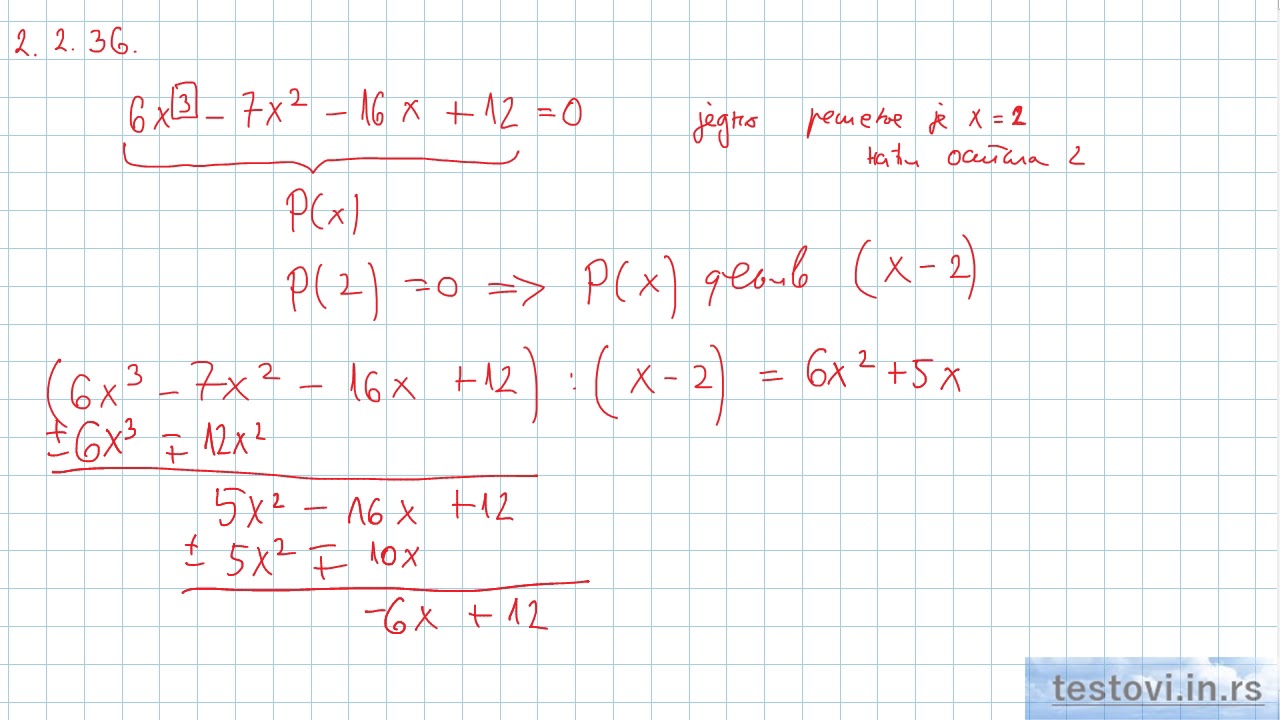 2. 2. 36.
6x³ - 7x² - 16x + 12 = 0 једно решење је x = 2
наћи остала 2
P(x)
P(2) = 0 => P(x) дељив (x - 2)
(6x³ - 7x² - 16x + 12) : (x - 2) = 6x² + 5x
±6x³ ∓ 12x²
5x² - 16x + 12
± 5x² ∓ 10x
-6x + 12
testovi.in.rs